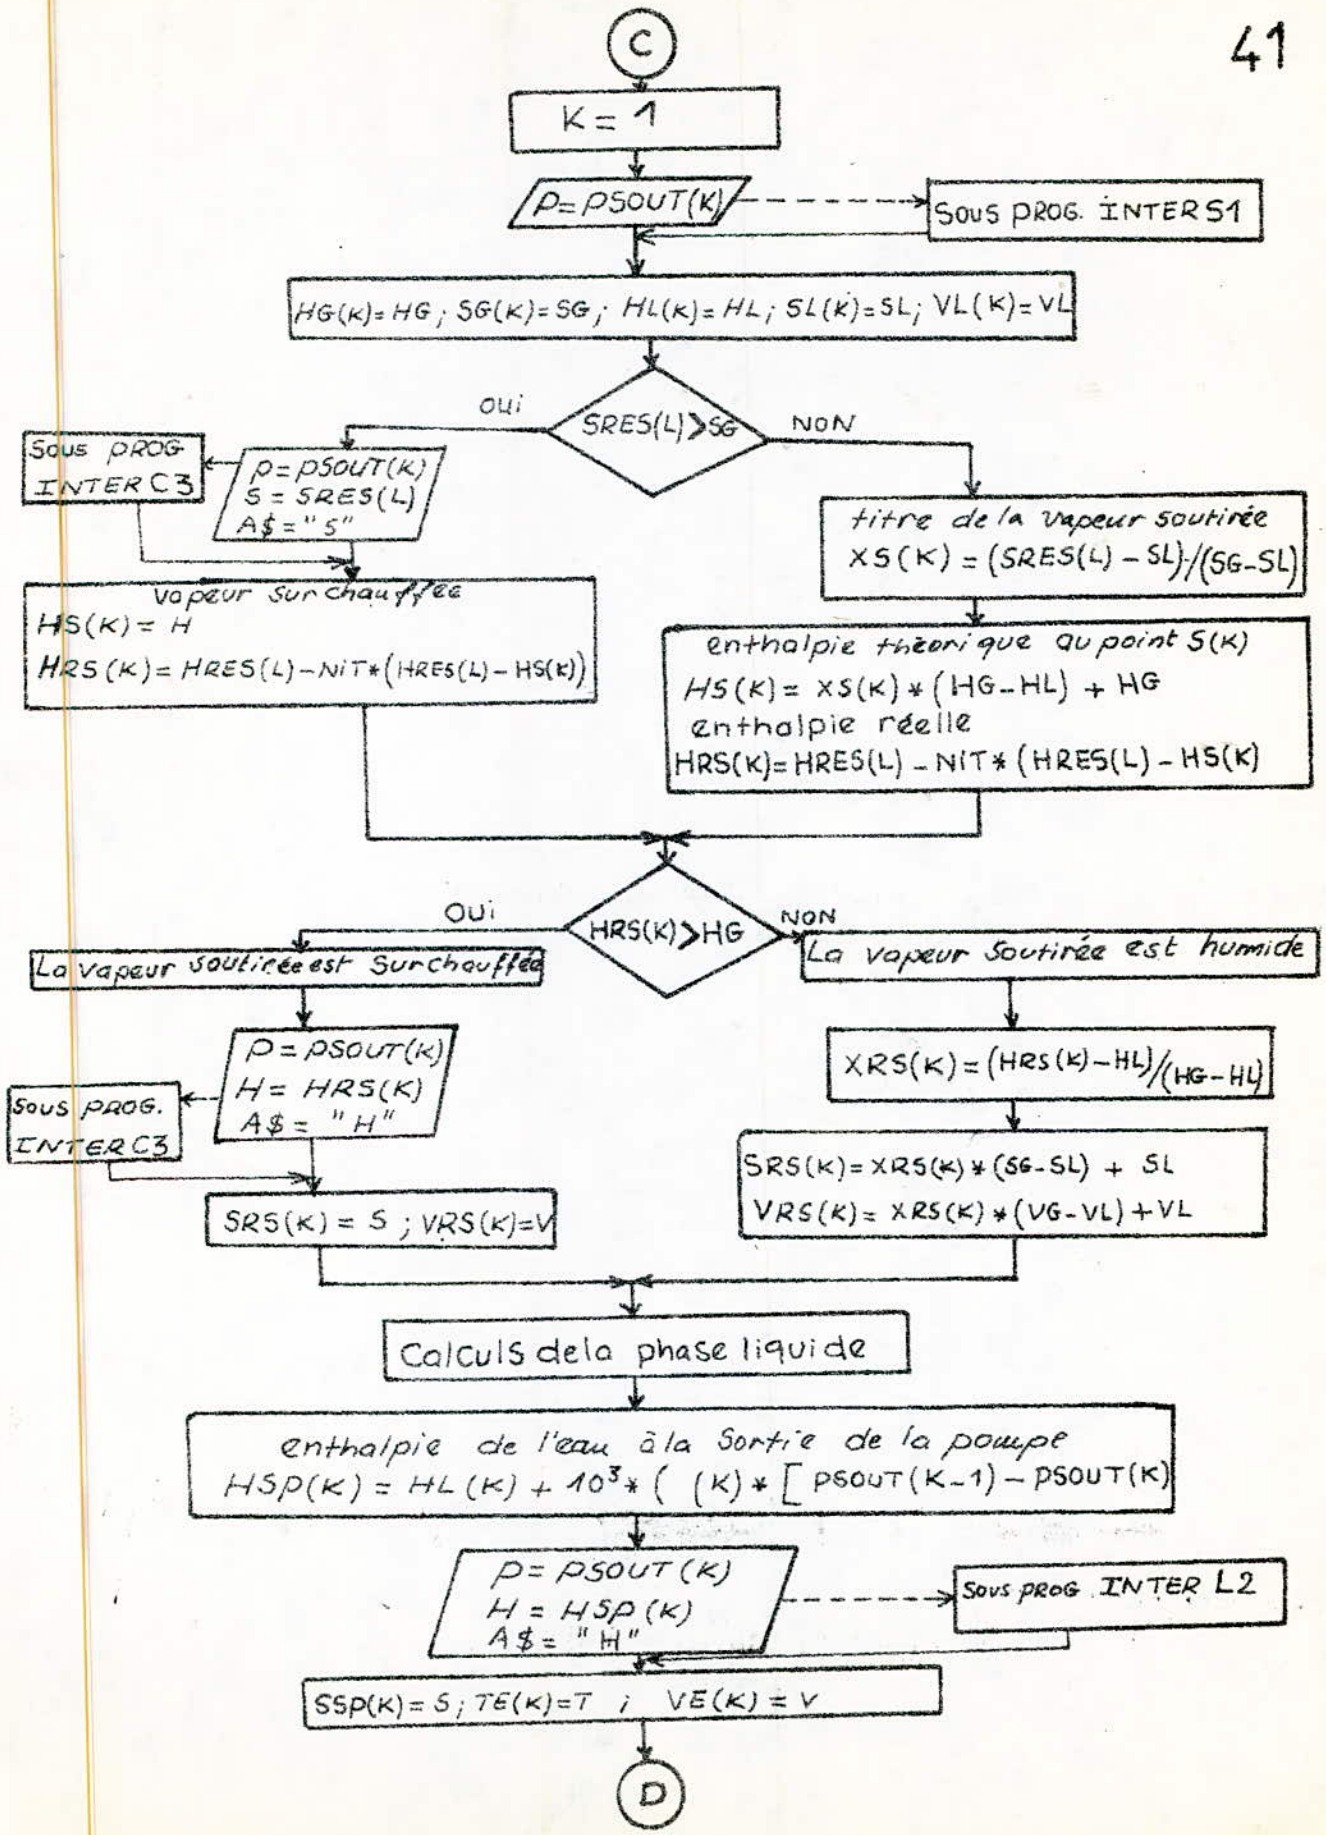 41
C
K = 1
P=PSOUT(K)
SOUS PROG. INTER S1
HG(K)=HG; SG(K)=SG; HL(K)=HL; SL(K)=SL; VL(K)=VL
OUI
SRES(L)>SG
NON
SOUS PROG
INTER C3
P=PSOUT(K)
S=SRES(L)
A$="S"
titre de la vapeur soutirée
XS(K) = (SRES(L)-SL)/(SG-SL)
vapeur surchauffée
HS(K)= H
HRS(K)=HRES(L)-NIT*(HRES(L)-HS(K))
enthalpie théorique au point S(K)
HS(K)= XS(K)*(HG-HL)+HG
enthalpie réelle
HRS(K)=HRES(L)-NIT*(HRES(L)-HS(K)
OUI
HRS(K)>HG
NON
La vapeur soutirée est surchauffée
La vapeur soutirée est humide
P=PSOUT(K)
H=HRS(K)
A$= "H"
SOUS PROG.
INTER C3
XRS(K)=(HRS(K)-HL)/(HG-HL)
SRS(K)=XRS(K)*(SG-SL) + SL
VRS(K)= XRS(K)*(VG-VL)+VL
SRS(K) = S ; VRS(K)=V
Calculs de la phase liquide
enthalpie de l'eau à la sortie de la pompe
HSP(K) = HL(K) + 10³*( (K)*[PSOUT(K-1)-PSOUT(K)
P=PSOUT(K)
H=HSP(K)
A$="H"
SOUS PROG. INTER L2
SSP(K)=S; TE(K)=T ; VE(K)=V
D